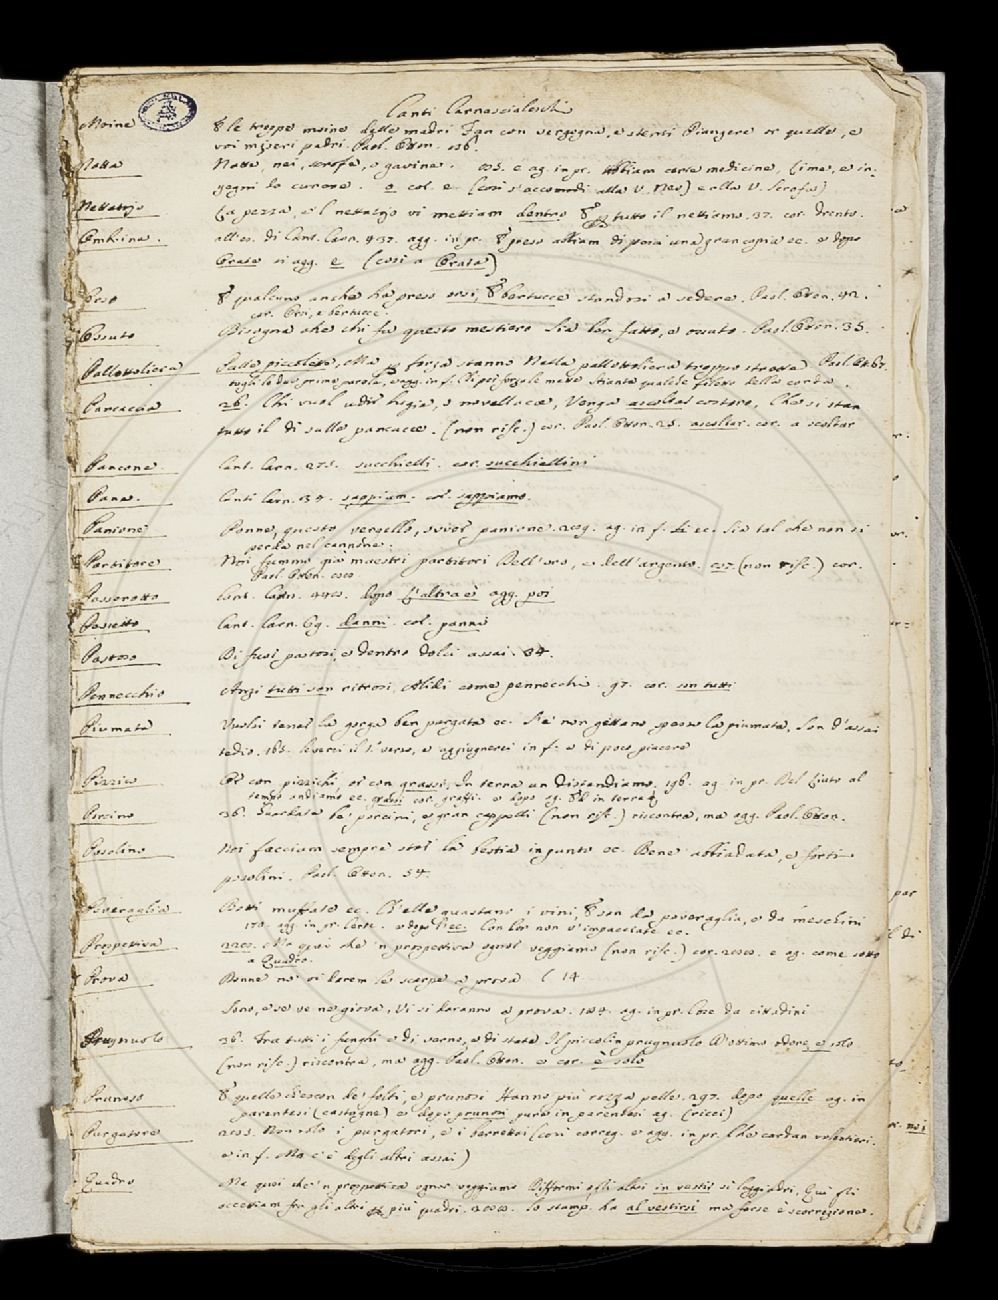 Canti Carnascialeschi
Moine
P le troppe moine delle madri Fan con vergogna, e stenti Piangere or quelle, e
voi miseri padri. Paol. Otton. 136.
Natta
Natte, nei, scrofe, e gavine. e ag. in pr. Abbiam certe medicine, lime, e in-
gegni da curare. o col. e (così s'accomodi alla V. Neo) e alla V. Scrofa)
Nettatojo
La pezza, e'l nettatojo vi mettiam dentro P tutto il nettiamo. 37. cor. drento.
all'es. di Cant. Carn. 437. agg. in pr. P preso abbiam di poi una gran copia ec. e dopo
Orata si agg. e (così a Orata)
P qualcuno anche ha preso orsi, P bertucce standosi a sedere. Paol. Otton. 42.
cor. Orsi, e bertucce.
Ossuto
Bisogna che chi fa questo mestiero Sia ben fatto, e ossuto. Paol. Otton. 35.
Pallottoliera
Palle piccolette, Ma forza stanno Nella pallottoliera troppo strette Paol. Ott. 67.
togli le due prime parole, e agg. in f. Chi poi forza le mette Stianta qualche filetto della corda.
Pancaccia
26. Chi vuol udir bugie, o novellacce, Venga ascoltar costoro, Che si stan
tutto il dì sulle pancacce. (non rife.) cor. Paol. Otton. 25. ascoltar. cor. a scoltar
Pancone
Cant. Carn. 275. succhielli. cor. succhiellini
Pane.
Canti Carn. 134. sappiam. cor. sappiamo.
Panione
Donne, questo vergello, ovver panione. 209. ag. in f. ec. Sia tal che non si
perda nel cannone.
Partitore
Noi fummo già maestri partitori Dell'oro, e dell'argento. (non rife.) cor.
Paol. Otton.
Passerotto
Cant. Carn. dopo L'altra è agg. poi
Cant. Carn. 69. danni. col. panni
Pastoso
Di fuor pastosi, e dentro dolci assai. 34.
Pennecchio
Anzi tutti son ritrosi, Alidi come pennecchi. 97. cor. son tutti
Piumata
Vuolsi tener la gorga ben purgata ec. Se non gettano spesso la piumata, Son d'assai
tedio. 165. levisi il 1. verso, e aggiugnerei in f. e di poco piacere
Pizzico
Or con pizzichi, or con grassi, In terra un distendiamo. 196. ag. in pr. Del liuto al
tempo andiamo ec. grassi cor. graffi. e dopo ag. in terra
Porcino
36. Guardate be' porcini, e gran cappelli (non rife.) riscontra, ma agg. Paol. Otton.
Posolino
Noi facciam sempre star la bestia in punto ec. Bene abbiadata, e forti
posolini. Paol. Otton. 54.
Poveraglia
Botti muffate ec. Ch'elle guastano i vini, P son da poveraglia, e da meschini
170. agg. in pr. Certe. e dopo ec. Con lor non v'impacciate ec.
Prospettiva
Ma quei che 'n prospettiva ognor veggiamo (non rife.) cor. e ag. come sotto
a Quadro.
Prova
Donne no' vi darem le scarpe a prova ( 14
Sono, e se ve ne giova, Vi si daranno a prova. 184. ag. in pr. Cose da cittadini
Prugnuolo
36. Fra tutti i funghi e di verno, e di state Il piccolin prugnuolo D'ottimo odore, e solo
(non rife.) riscontra, ma agg. Paol. Otton. e cor. è solo
Prunoso
P quelle ch'escon de' folti, e prunosi Hanno più rozza pelle. 297. dopo quelle ag. in
parentesi (castagne) e dopo prunosi pure in parentesi ag. (ricci)
Purgatore
Non solo i purgatori, e i berrettai (così correg. e agg. in pr. Che cardan volentieri.
e in f. Ma c'è degli altri assai)
Quadro
Ma quei che 'n prospettiva ognor veggiamo Differenti agli altri in vestir sì leggiadri, Qui gli
accettiam fra gli altri più quadri. lo stamp. ha al vestirsi ma forse è scorrezione.